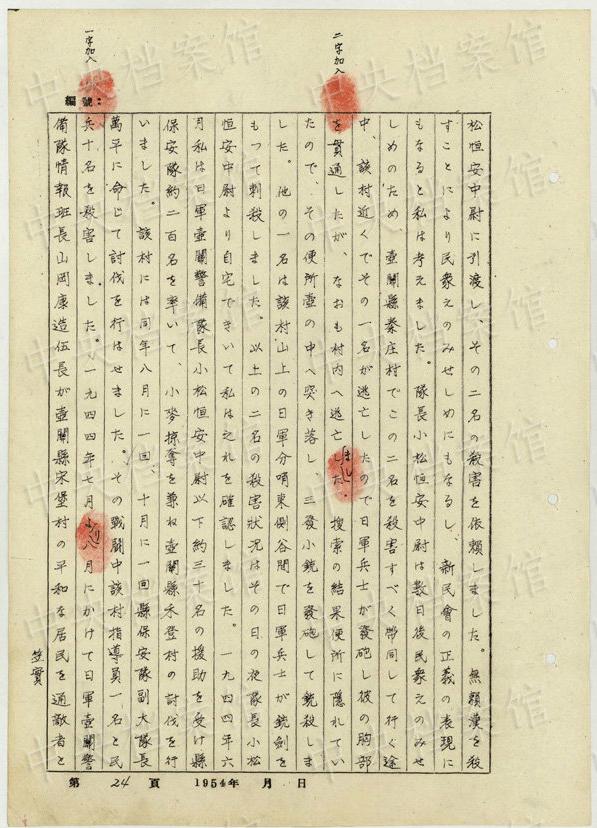 二字加入
一字加入
編號：
松恒安中尉に引渡し、その二名の殺害を依頼しました。無頼漢を殺
すことにより民衆えのみせしめにもなるし、新民會の正義の表現に
もなると私は考えました。隊長小松恒安中尉は数日後民衆えのみせ
しめのため、壺關縣秦庄村でこの二名を殺害すべく帶同して行く途
中、該村近くでその一名が逃亡したので日軍兵士が發砲し彼の胸部
を貫通したが、なおも村内へ逃亡しました。搜索の結果便所に隱れてい
たので、その便所壺の中へ突き落し、三發小銃を發砲して銃殺しま
した。他の一名は該村山上の日軍分哨東側谷間で日軍兵士が銃劍を
もつて刺殺しました。以上の二名の殺害狀況はその日の夜隊長小松
恒安中尉より自宅できいて私は之れを確認しました。一九四四年六
月私は日軍壺關警備隊長小松恒安中尉以下約三十名の援助を受け縣
保安隊約二百名を率いて、小麥掠奪を兼ね壺關縣禾登村の討伐を行
いました。該村には同年八月に一回、十月に一回縣保安隊副大隊長
萬平に命じて討伐を行はせました。その戰鬪中該村指導員一名と民
兵十名を殺害しました。一九四四年七月より八月にかけて日軍壺關警
備隊情報班長山岡康造伍長が壺關縣宋堡村の平和な居民を通敵者と
笠實
第 24 頁 1954年 月 日
中央档案馆
中央档案馆
中央档案馆
中央档案馆